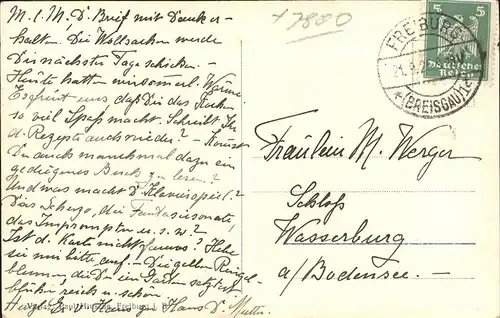 M. l. M! D. Brief mit Dank er-
halten. Die Wollsachen werde
Dir nächster Tage schicken.-
Heute hatten wir sommerl. Wärme.
Es freut uns daß Dir das Kochen
so viel Spaß macht. Schreibst Du
d. Rezepte auch nieder? Kannst
Du auch manchmal dazu ein
gediegenes Buch zu lesen?
Und was macht D. Klavierspiel?
Das, die Fantasiesonate,
das Impromptu u. s. w?
Ist d. Karte nicht famos? Hebe
sie mir bitte auf.- Die gelben Ringel-
blumen, die Du im Garten
blühen reich u. schön.
Herzl. v. Haus zu Haus D. Mutter.
+ 7880
FREIBURG
(BREISGAU)
5 5
Deutsches
Reich
Fräulein M. Werger
Schloß
Wasserburg
a/Bodensee.-